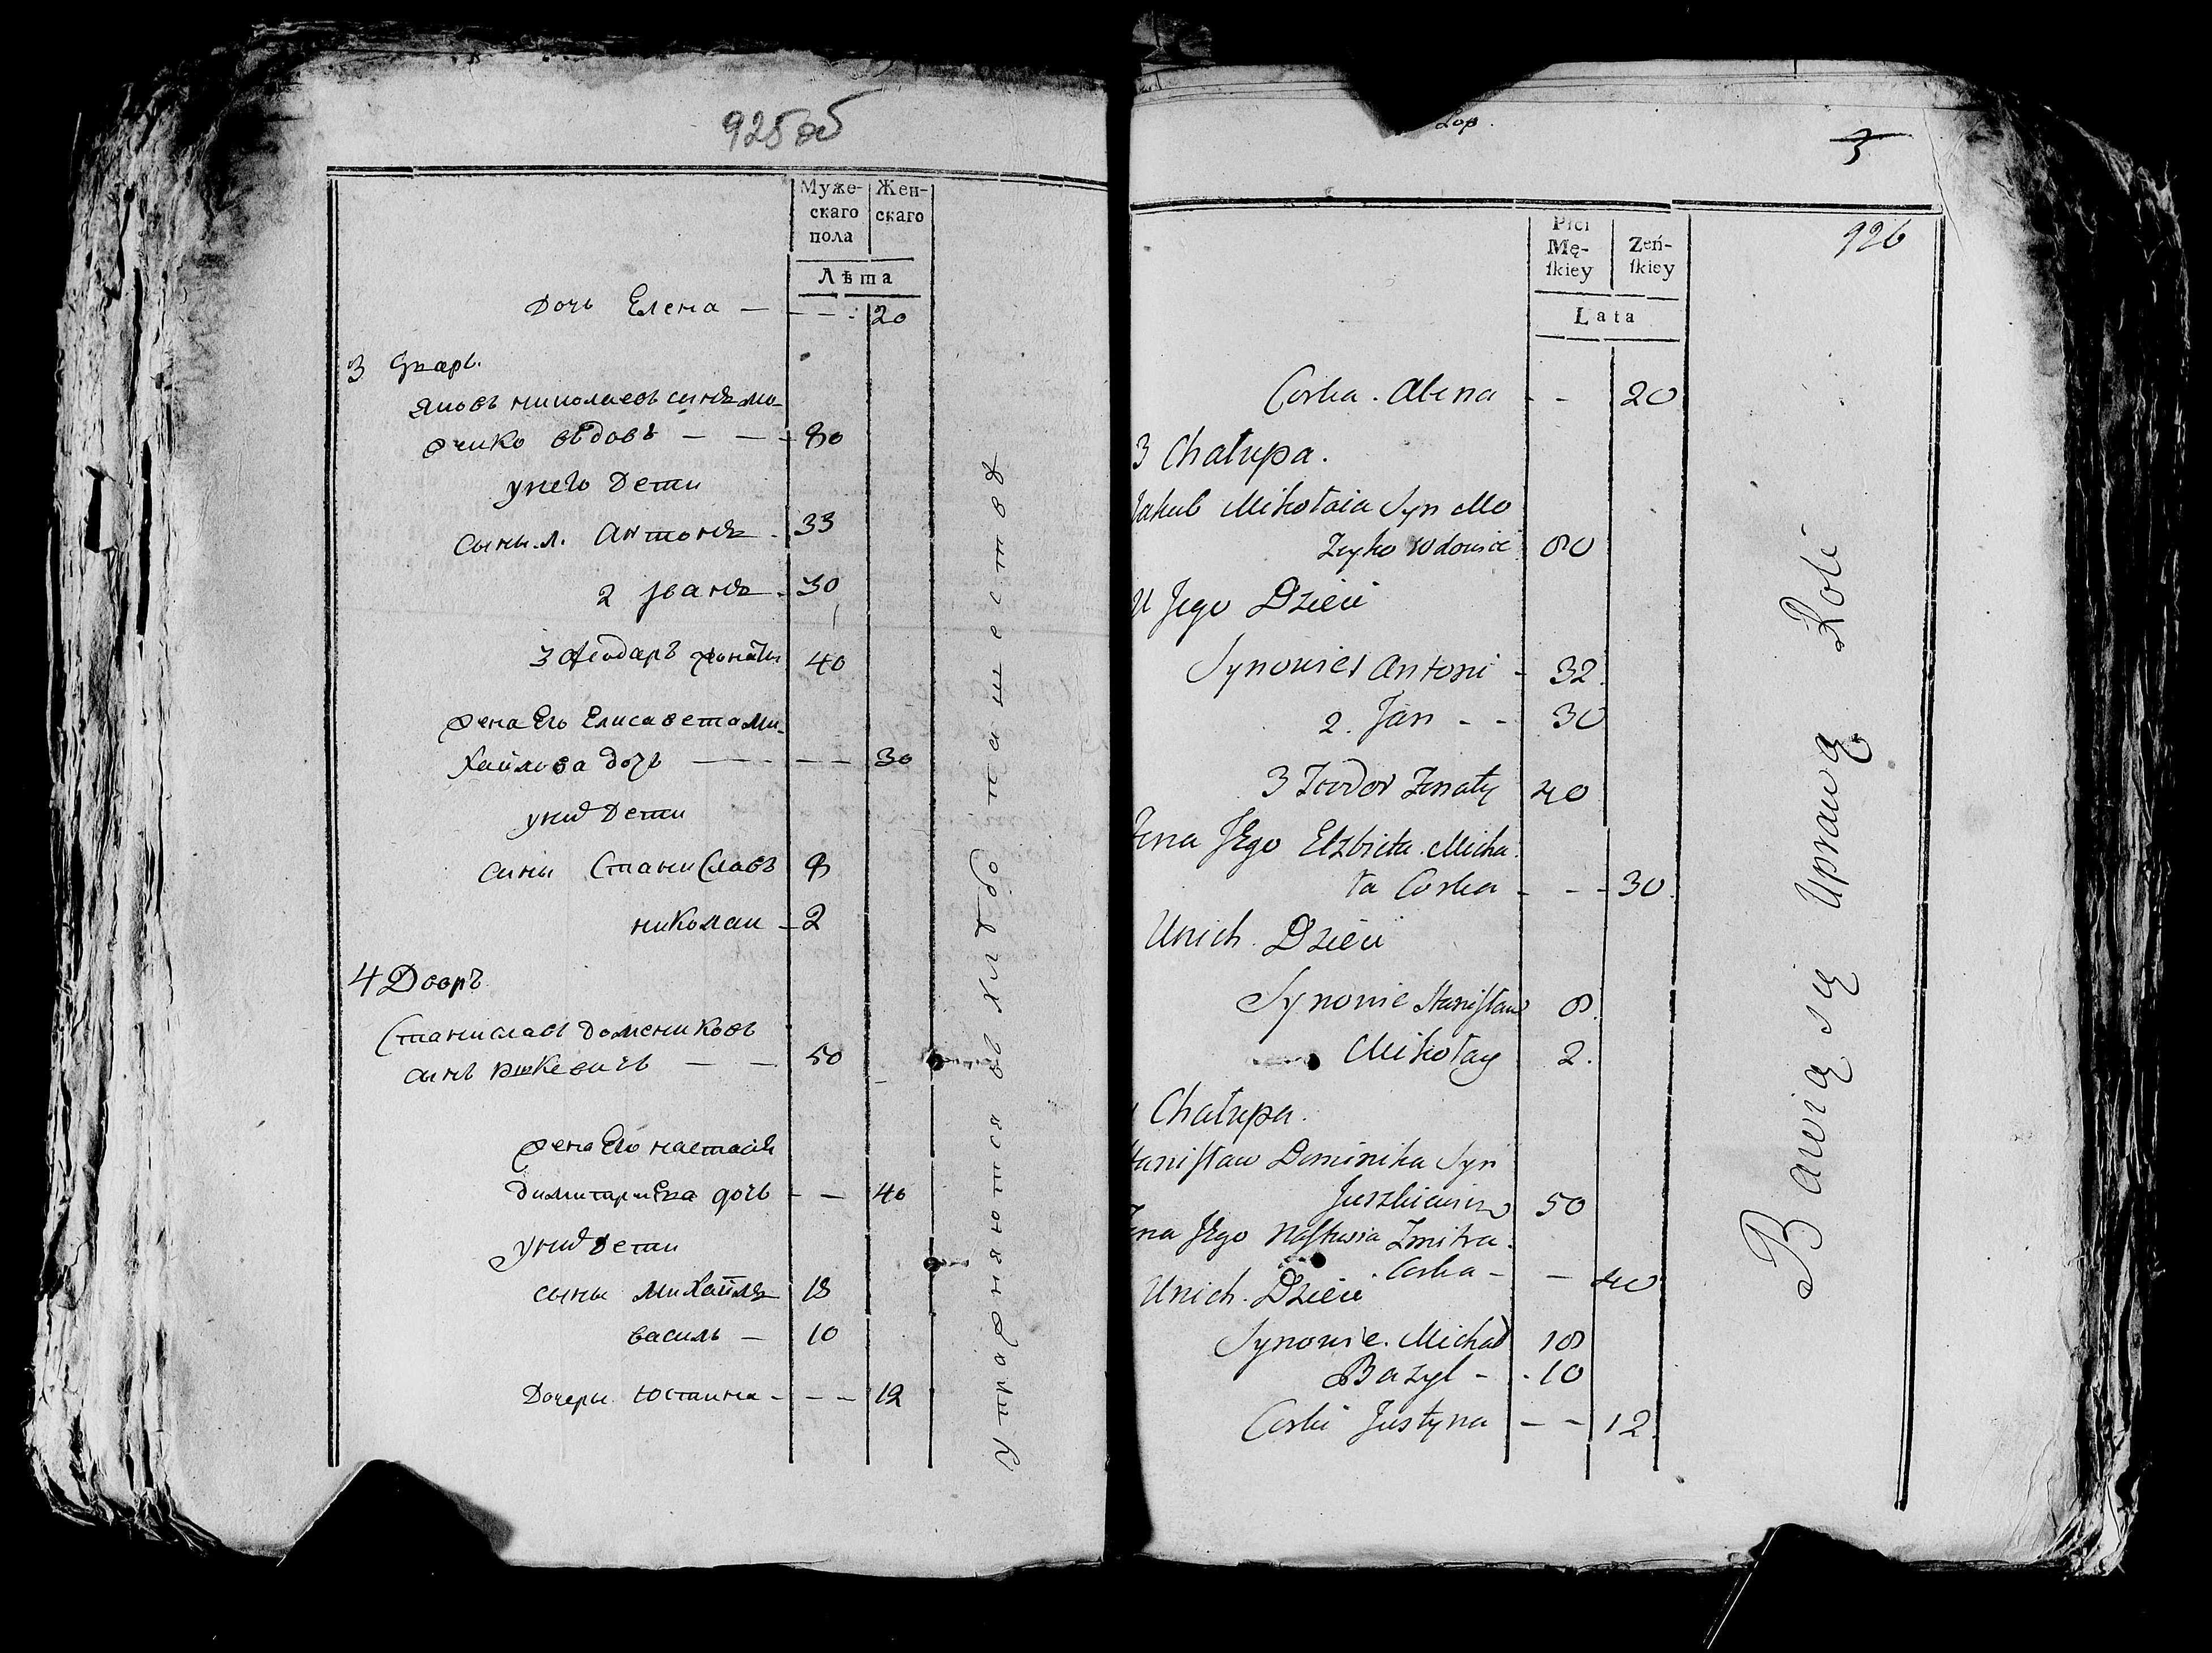 925 об
Муже-
скаго
пола
Жен-
скаго
Лѣта
дочь Елена — - - - 20
3 Дваръ.
Яковъ николаевъ синъ мо-
жейко вѣдовъ — — - 80
у него дети
Сыны. 1. Антонъ - 33
2 Іванъ - 30
3 Феодаръ жонатъ 40
жена Его Елисавета Ми-
хайлова дочь — - - - — 30
у них дети
сины Станиславъ 8
николаи - 2
4 Дворъ
Станиславъ домениковъ
синъ юшкевичъ — — 50
жена Его настася
димитриева дочь - — 40
у них дети
сыны михайлъ 18
василь — 10
Дочеры Юстина - - - 12
упражняются въ хлѣбопашествѣ
3
926
Płci
Mę-
ſkiey
Zeń-
ſkiey
Lata
Corka. Alena - - 20
3 Chałupa.
Jakub Mikołaia Syn Mo
zeyko wdowiec 80
u Jego Dzieci
Synowie 1 Antoni - 32.
2. Jan - - 30
3 Teodor Zonaty 40
Zena Jego Elzbieta. Micha.
ła Corka - - - 30.
U nich. Dzieci
Synowie Staniſław 8.
Mikołay 2.
Chałupa.
Staniſław Dominika Syn
Juszkiewicz 50
Zena Jego Naſtusia Zmitra.
Corka - — 40
U nich. Dzieci
Synowie. Michał 18
Bazyl - . 10
Corki Justyna — — 12.
Bawią się Uprawą Roli